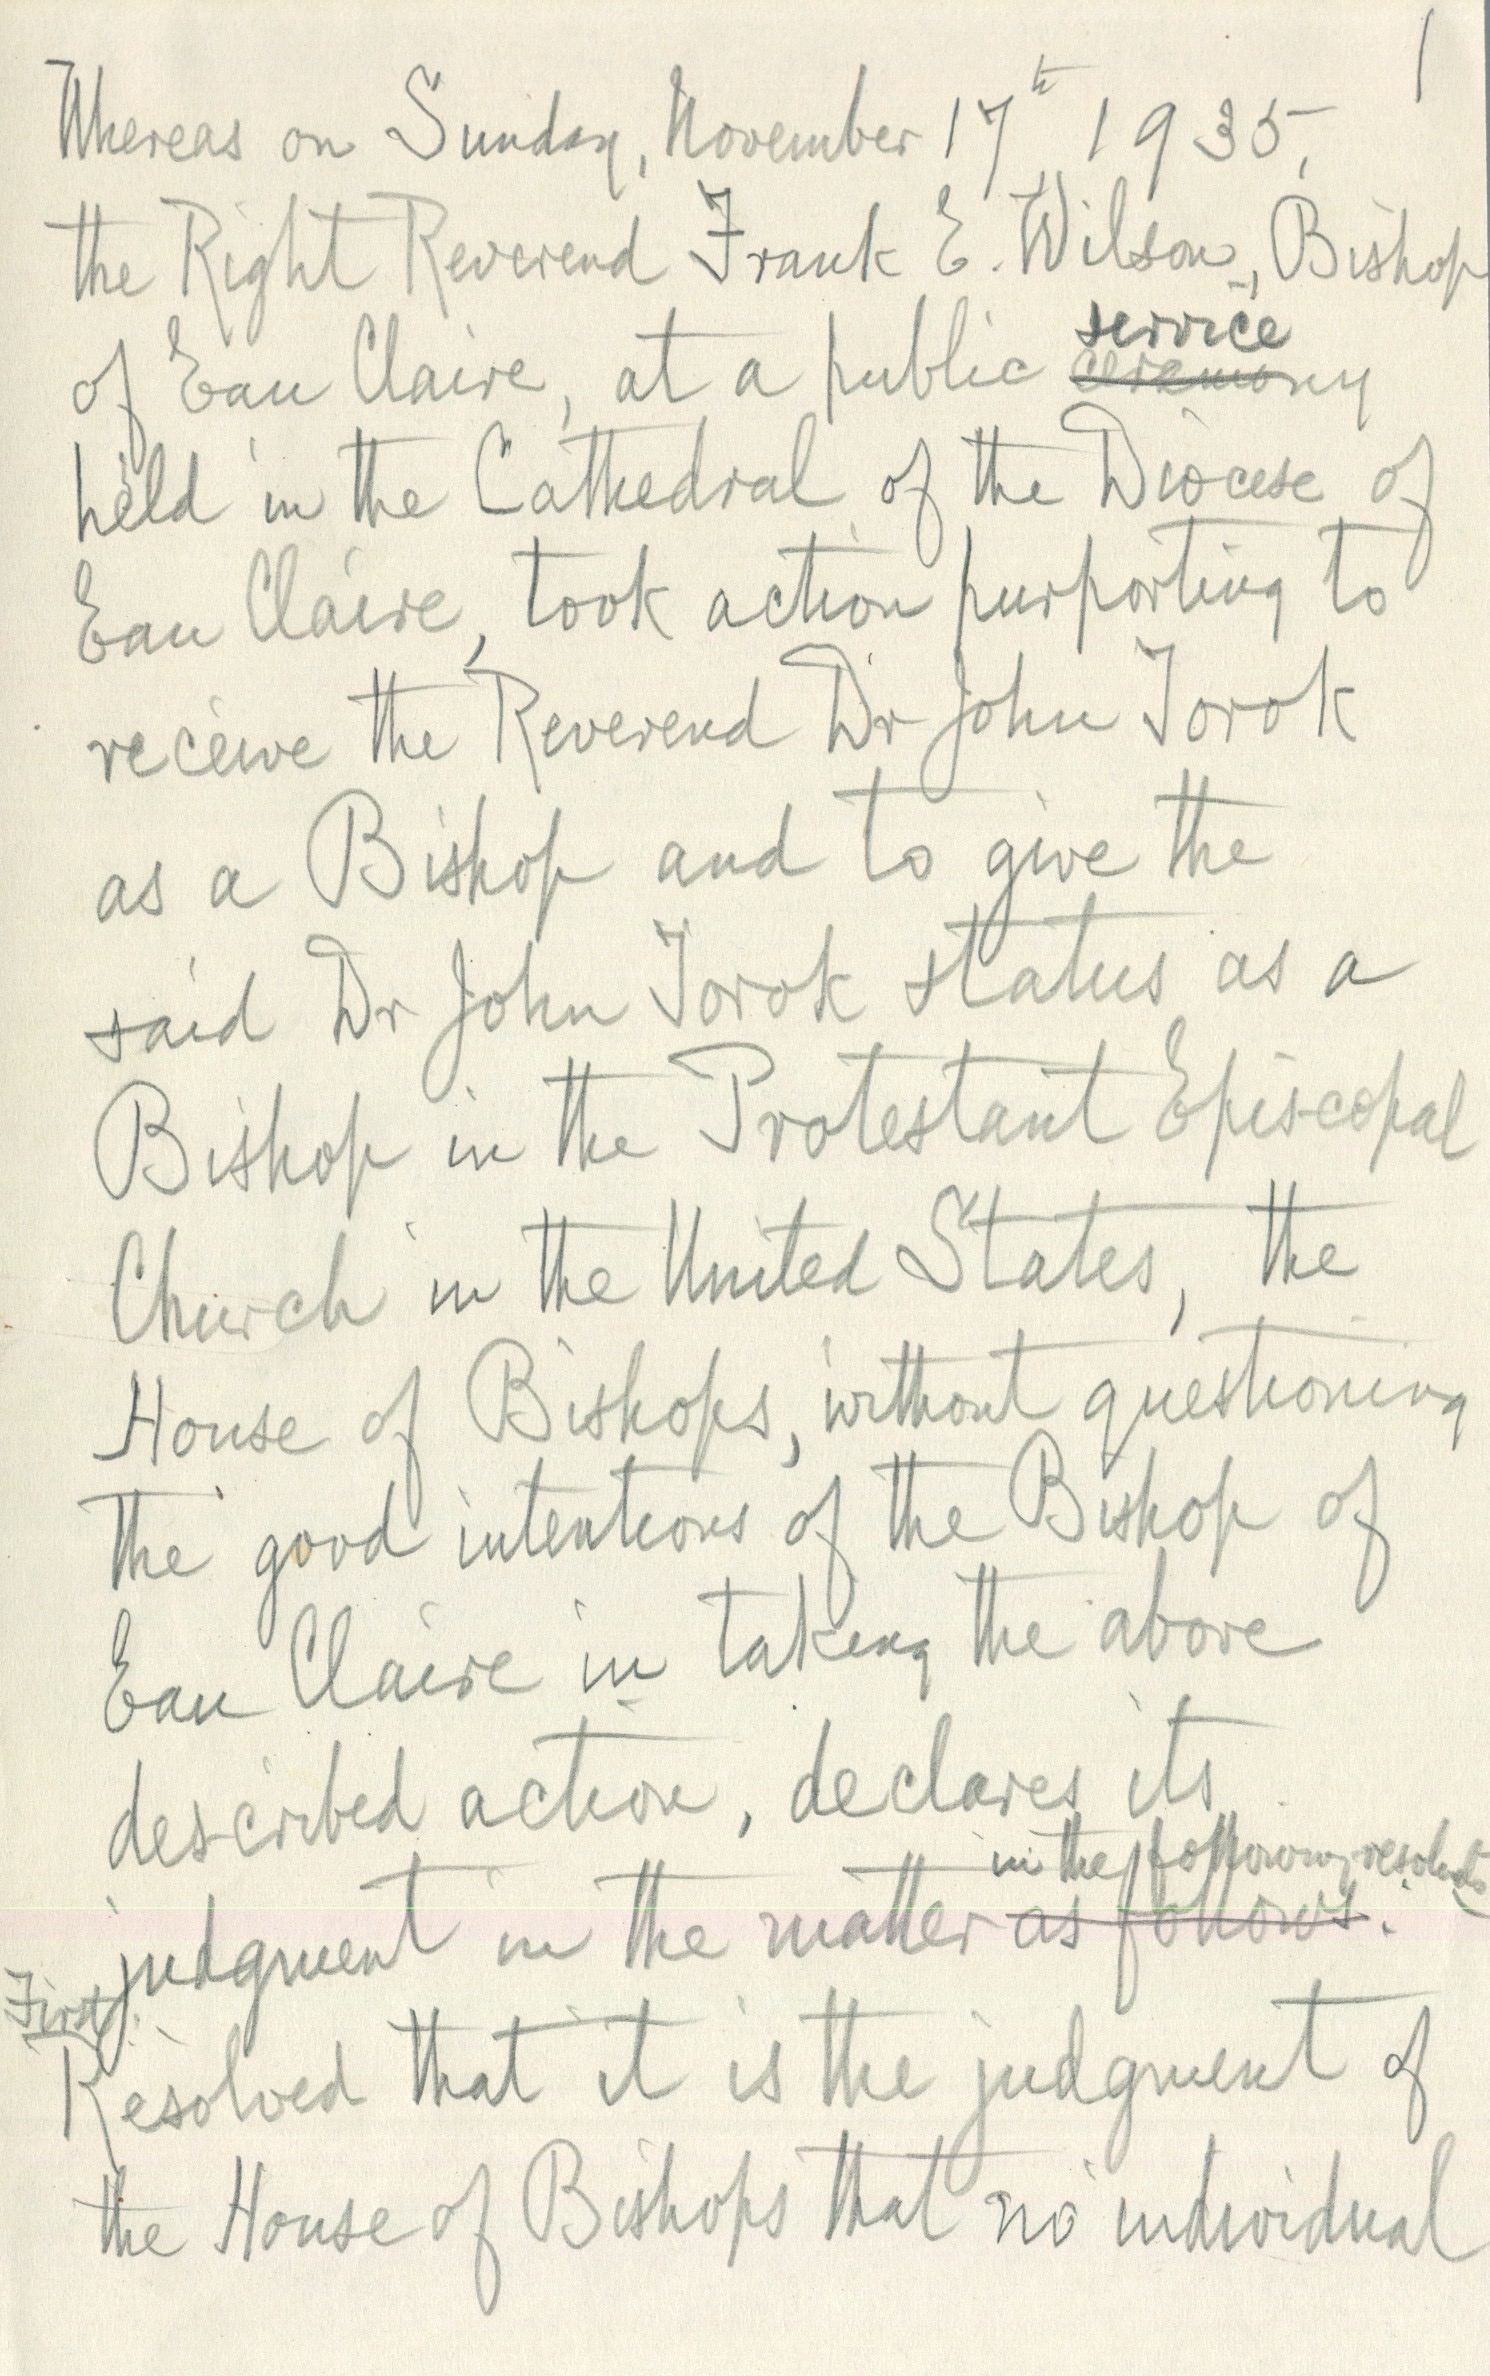 1
Whereas on Sunday, November 17th 1935,
the Right Reverend Frank E. Wilson, Bishop
service
of Eau Claire, at a public ceremony
held in the Cathedral of the Diocese of
Eau Claire, took action purporting to
receive the Reverend Dr John Torok
as a Bishop and to give the
said Dr John Torok status as a
Bishop in the Protestant Episcopal
Church in the United States, the
House of Bishops, without questioning
the good intentions of the Bishop of
Eau Claire in taking the above
described action, declares its
in the following
judgment in the matter as follows:
First.
Resolved that it is the judgment of
the House of Bishops that no individual